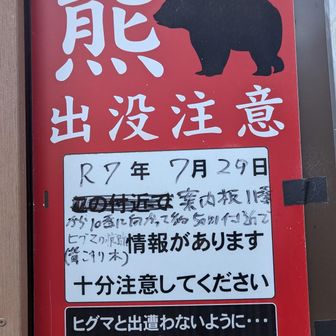 熊
出没注意
R7年 7月29日
この付近で 案内板11番
から10番に向かって約50m付近で
ヒグマの痕跡情報があります
(背こすり木)
十分注意してください
ヒグマと出遭わないように・・・